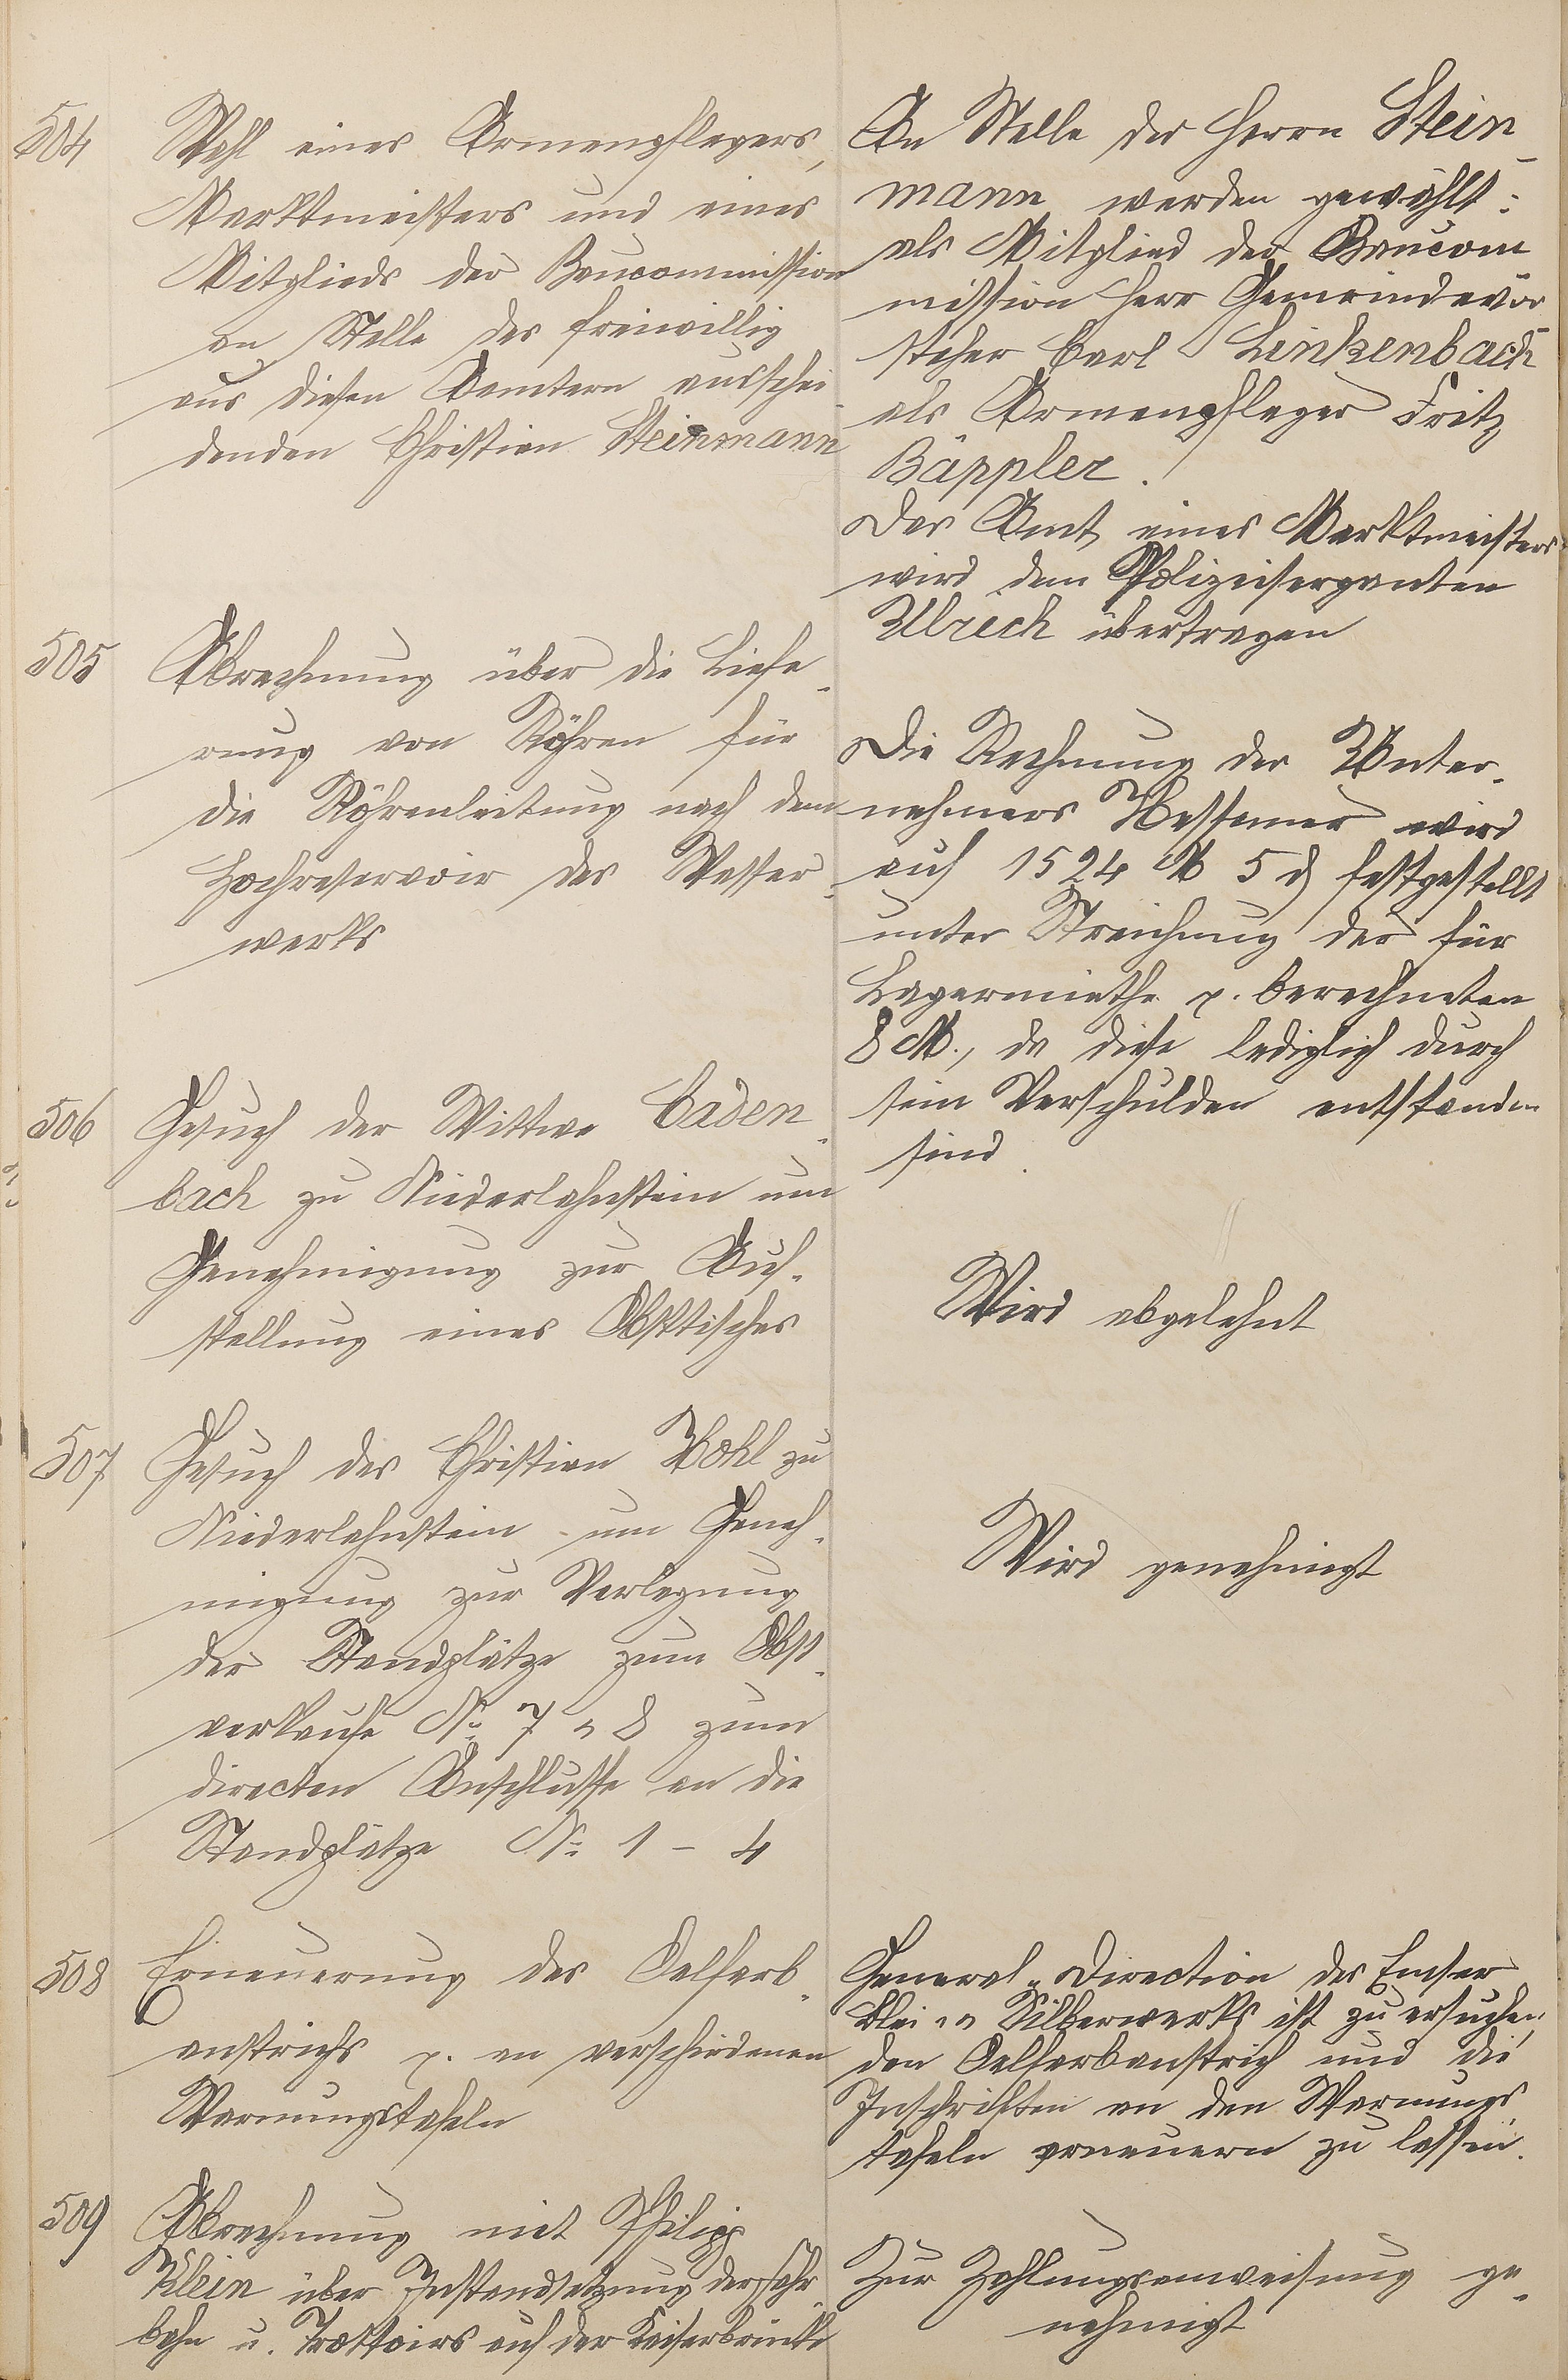 504
Wahl eines Armenpflegers,
Marktmeisters und eines
Mitglieds der Baucommission
an Stelle des freiwillig
aus diesen Aemtern ausschei-
denden Christian Steinmann
An Stelle des Herrn Stein-
mann werden gewählt:
als Mitglied der Baucom
mission Herr Gemeindevor-
steher Carl Linkenbach
als Armenpfleger Fritz
Bäppler.
Das Amt eines Marktmeisters
wird dem Polizeiserganten
Ulrich übertragen
505
Abrechnung über die Liefe-
rung von Röhren für
die Röhrenleitung nach dem
Hochreservoir des Wasser-
werks
Die Rechnung des Unter-
nehmers Hessemer wird
auf 1524 M 5 d festgestellt
unter Streichung der für
Lagermiethe p. berechneten
8 M., da diese lediglich durch
sein Verschulden entstanden
sind.
506
Gesuch der Wittwe Caden-
bach zu Niederlahnstein um
Genehmigung zur Auf-
stellung eines Obsttisches
Wird abgelehnt
507
Gesuch des Christian Bohl zu
Niederlahnstein um Geneh-
migung zur Verlegung
der Standplätze zum Obst-
verkaufe No 7 u 8 zum
directen Anschlusse an die
Standplätze No 1 - 4
Wird genehmigt
508
Erneuerung des Oelfarb-
anstrichs p. an verschiedenen
Warnungstafeln
General-Direction des Emser
Blei- u Silberwerks ist zu ersuchen,
den Oelfarbanstrich und die
Inschriften an den Warnungs
tafeln erneuern zu lassen.
509
Abrechnung mit Philipp
Klein über Instandsetzung der Fahr-
bahn u. Trottoirs auf der Kaiserbrücke
Zur Zahlungsanweisung ge-
nehmigt